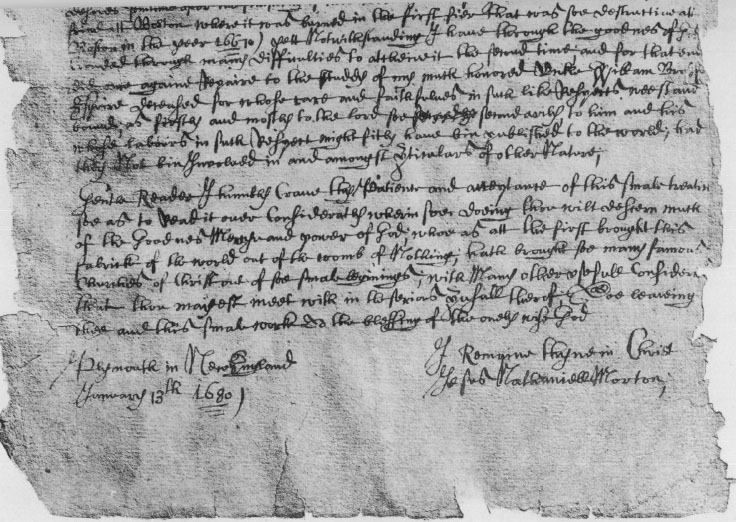 att Boston where it was burned in the first fier that was soe destructive att
Boston in the yeer 1676) yett Notwithstanding I have through the goodnes of
through many difficulties to atcheive it the second time and for that end
did once againe Repaire to the studdy of my much honored Unkle William
deceased for whose care and faithfulnes in such like Respects wee stand
bound; as firstly and mostly to the lord soe secondarily to him and his
whose labours in such Respect might fitly have bin published to the world; had
they Not bin Involved in and amongst pticulars of other Nature;
Gentle Reader I humbly Crave thy patience and acceptance of this smale treatise
soe as to Read it over Considerately wherin soe doeing thou wilt deserne much
of the Goodnes Mercye and power of God; whoe as att the first brought this
fabrick of the world out of the womb of Nothing; hath brought soe many famous
Churches of Christ out of soe smale beginings; with Many other usefull Considerations
that thou mayest meet with in the serious pusall therof; Soe leaveing
thee and this smale worke to the blessing of the onely wise God
I Remaine thyne in Christ
Plymouth in New England
Jesus Nathaniell Morton;
January 13th 1680)